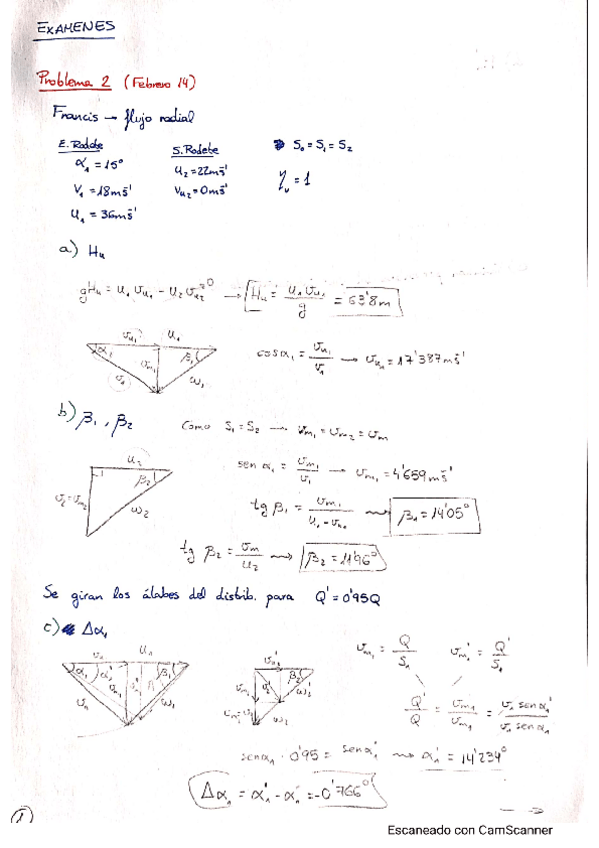 EXAMENES
Problema 2 (Febrero 14)
Francis → flujo radial
E. Rodete S. Rodete S₀ = S₁ = S₂
α₁ = 15° u₂ = 22ms⁻¹ η_u = 1
V₁ = 18ms⁻¹ Vu₂ = 0ms⁻¹
u₁ = 36ms⁻¹
a) Hu
gHu = u₁ vu₁ - u₂ vu₂ ⁰ → Hu = u₁ vu₁ / g = 63'8m
vu₁ u₁
α₁ vm₁ β₁
v₁ w₁
cosα₁ = vu₁ / v₁ → vu₁ = 17'387ms⁻¹
b) β₁, β₂ Como S₁ = S₂ → vm₁ = vm₂ = vm
u₂
β₂
v₂ = vm₂ w₂
sen α₁ = vm₁ / v₁ → vm₁ = 4'659ms⁻¹
tg β₁ = vm₁ / u₁ - vu₁ → β₁ = 14'05°
tg β₂ = vm / u₂ → β₂ = 11'96°
Se giran los álabes del distrib. para Q' = 0'95Q
c) Δα₁
u₁
α₁ α₁' β₁
v₁ w₁
β₂
w₂' w₂
vm₁ = Q / S₁ vm₁' = Q' / S₁
Q' / Q = vm₁' / vm₁ = v₁ senα₁' / v₁ senα₁
senα₁ · 0'95 = senα₁' → α₁' = 14'234°
Δα₁ = α₁' - α₁ = -0'766°
1
Escaneado con CamScanner